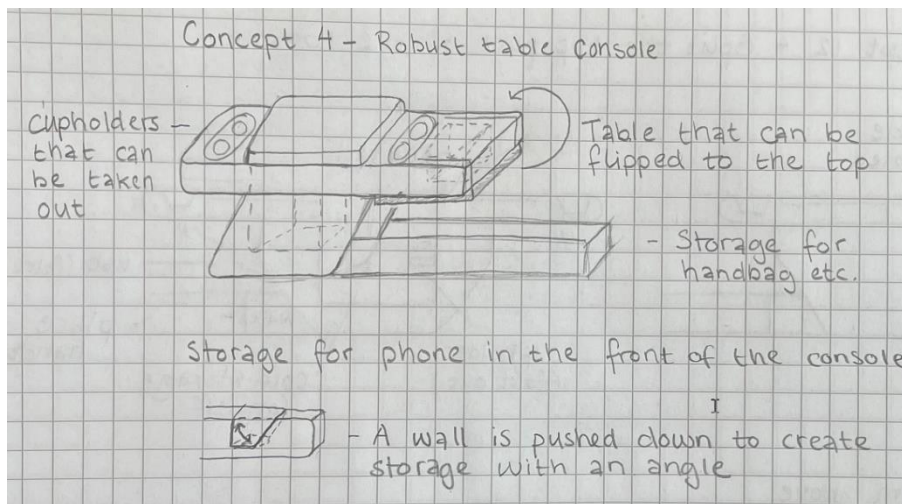 Concept 4 - Robust table console
cupholders -
that can
be taken
out
Table that can be
flipped to the top
- Storage for
handbag etc.
Storage for phone in the front of the console
- A wall is pushed down to create
storage with an angle